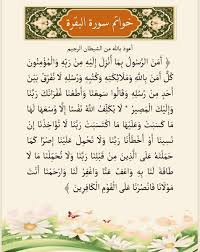 خواتم سورة البقرة
أعوذ بالله من الشيطان الرجيم
﴿ آمَنَ الرَّسُولُ بِمَا أُنزِلَ إِلَيْهِ مِن رَّبِّهِ وَالْمُؤْمِنُونَ
كُلٌّ آمَنَ بِاللَّهِ وَمَلَائِكَتِهِ وَكُتُبِهِ وَرُسُلِهِ لَا نُفَرِّقُ بَيْنَ
أَحَدٍ مِّن رُّسُلِهِ وَقَالُوا سَمِعْنَا وَأَطَعْنَا غُفْرَانَكَ رَبَّنَا
وَإِلَيْكَ الْمَصِيرُ * لَا يُكَلِّفُ اللَّهُ نَفْسًا إِلَّا وُسْعَهَا لَهَا
مَا كَسَبَتْ وَعَلَيْهَا مَا اكْتَسَبَتْ رَبَّنَا لَا تُؤَاخِذْنَا إِن
نَّسِينَا أَوْ أَخْطَأْنَا رَبَّنَا وَلَا تَحْمِلْ عَلَيْنَا إِصْرًا كَمَا
حَمَلْتَهُ عَلَى الَّذِينَ مِن قَبْلِنَا رَبَّنَا وَلَا تُحَمِّلْنَا مَا لَا
طَاقَةَ لَنَا بِهِ وَاعْفُ عَنَّا وَاغْفِرْ لَنَا وَارْحَمْنَا أَنتَ
مَوْلَانَا فَانصُرْنَا عَلَى الْقَوْمِ الْكَافِرِينَ ﴾